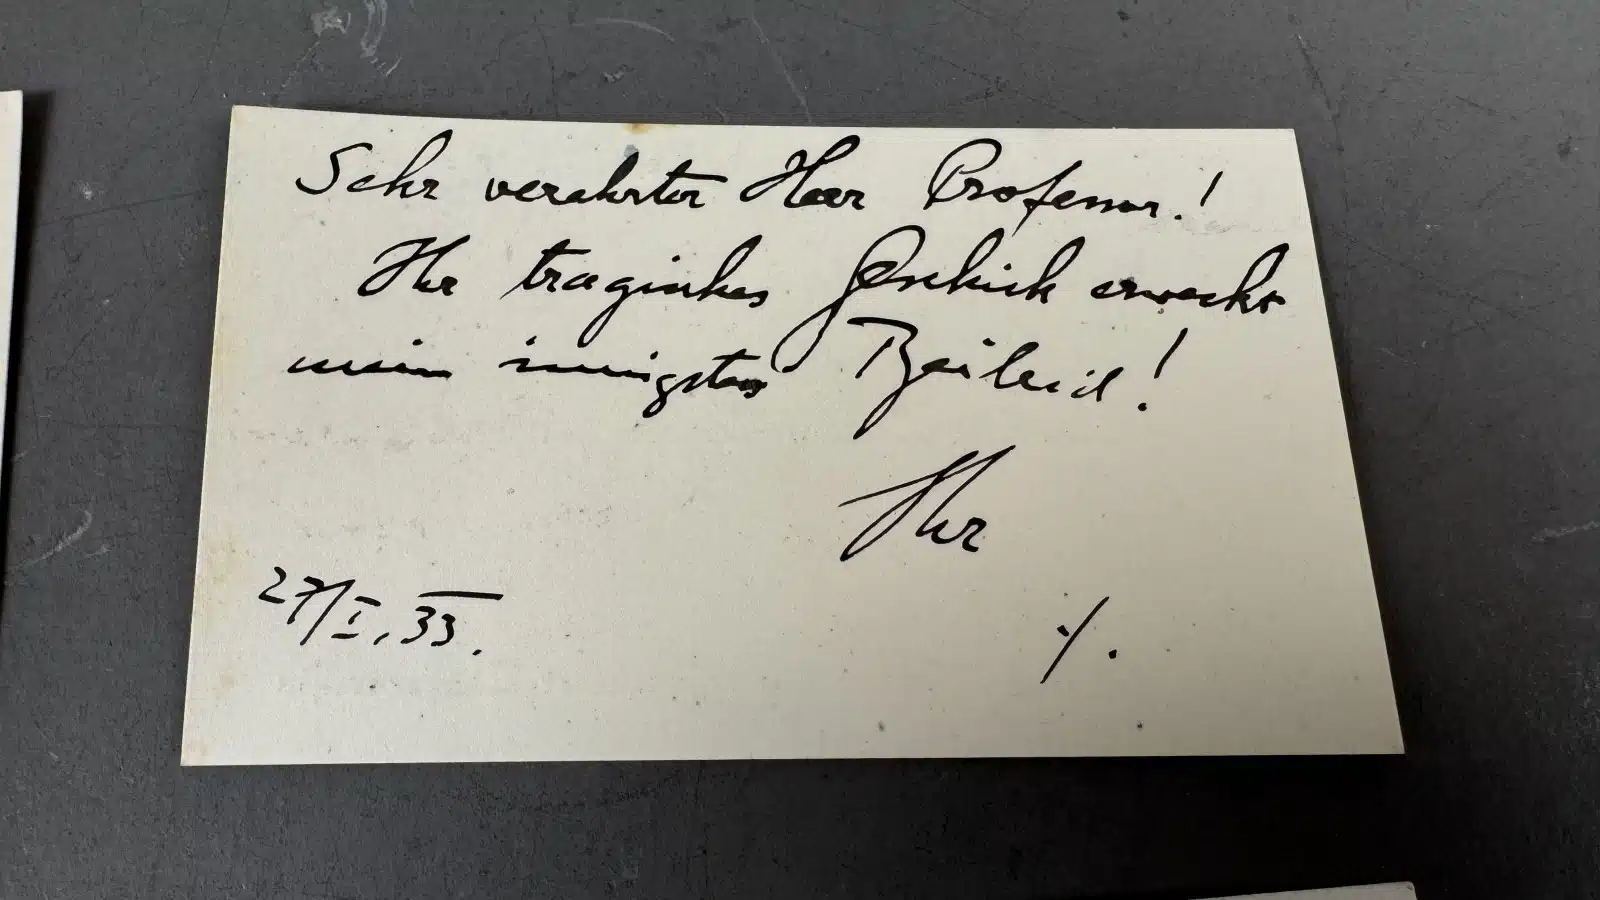 Sehr verehrter Herr Professor!
Ihr tragisches Geschick erweckt
mein innigstes Beileid!
Ihr
27/I.33.
./.